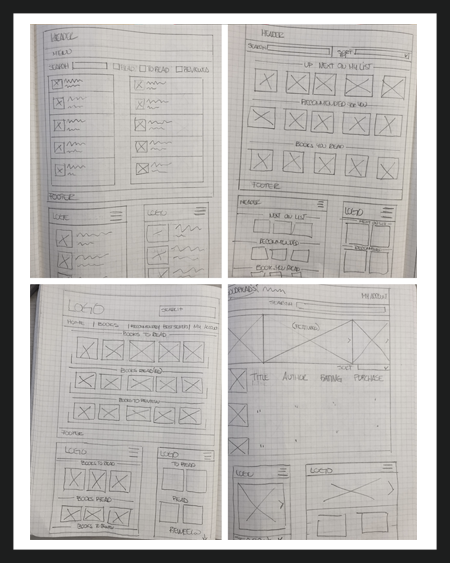 HEADER
MENU
SEARCH READ TO READ REVIEWED
FOOTER
LOGO
LOGO
HEADER
SEARCH SORT
UP NEXT ON MY LIST
RECOMMENDED FOR YOU
BOOKS YOU READ
FOOTER
HEADER
NEXT ON LIST
RECOMMENDED
BOOKS YOU READ
LOGO
LOGO
SEARCH
HOME | BOOKS
BOOKS TO READ
BOOKS TO REVIEW
FOOTER
LOGO
BOOKS TO READ
BOOKS READ
LOGO
TO READ
READ
REVIEW
SEARCH
SORT
TITLE AUTHOR RATING PURCHASE
LOGO
LOGO